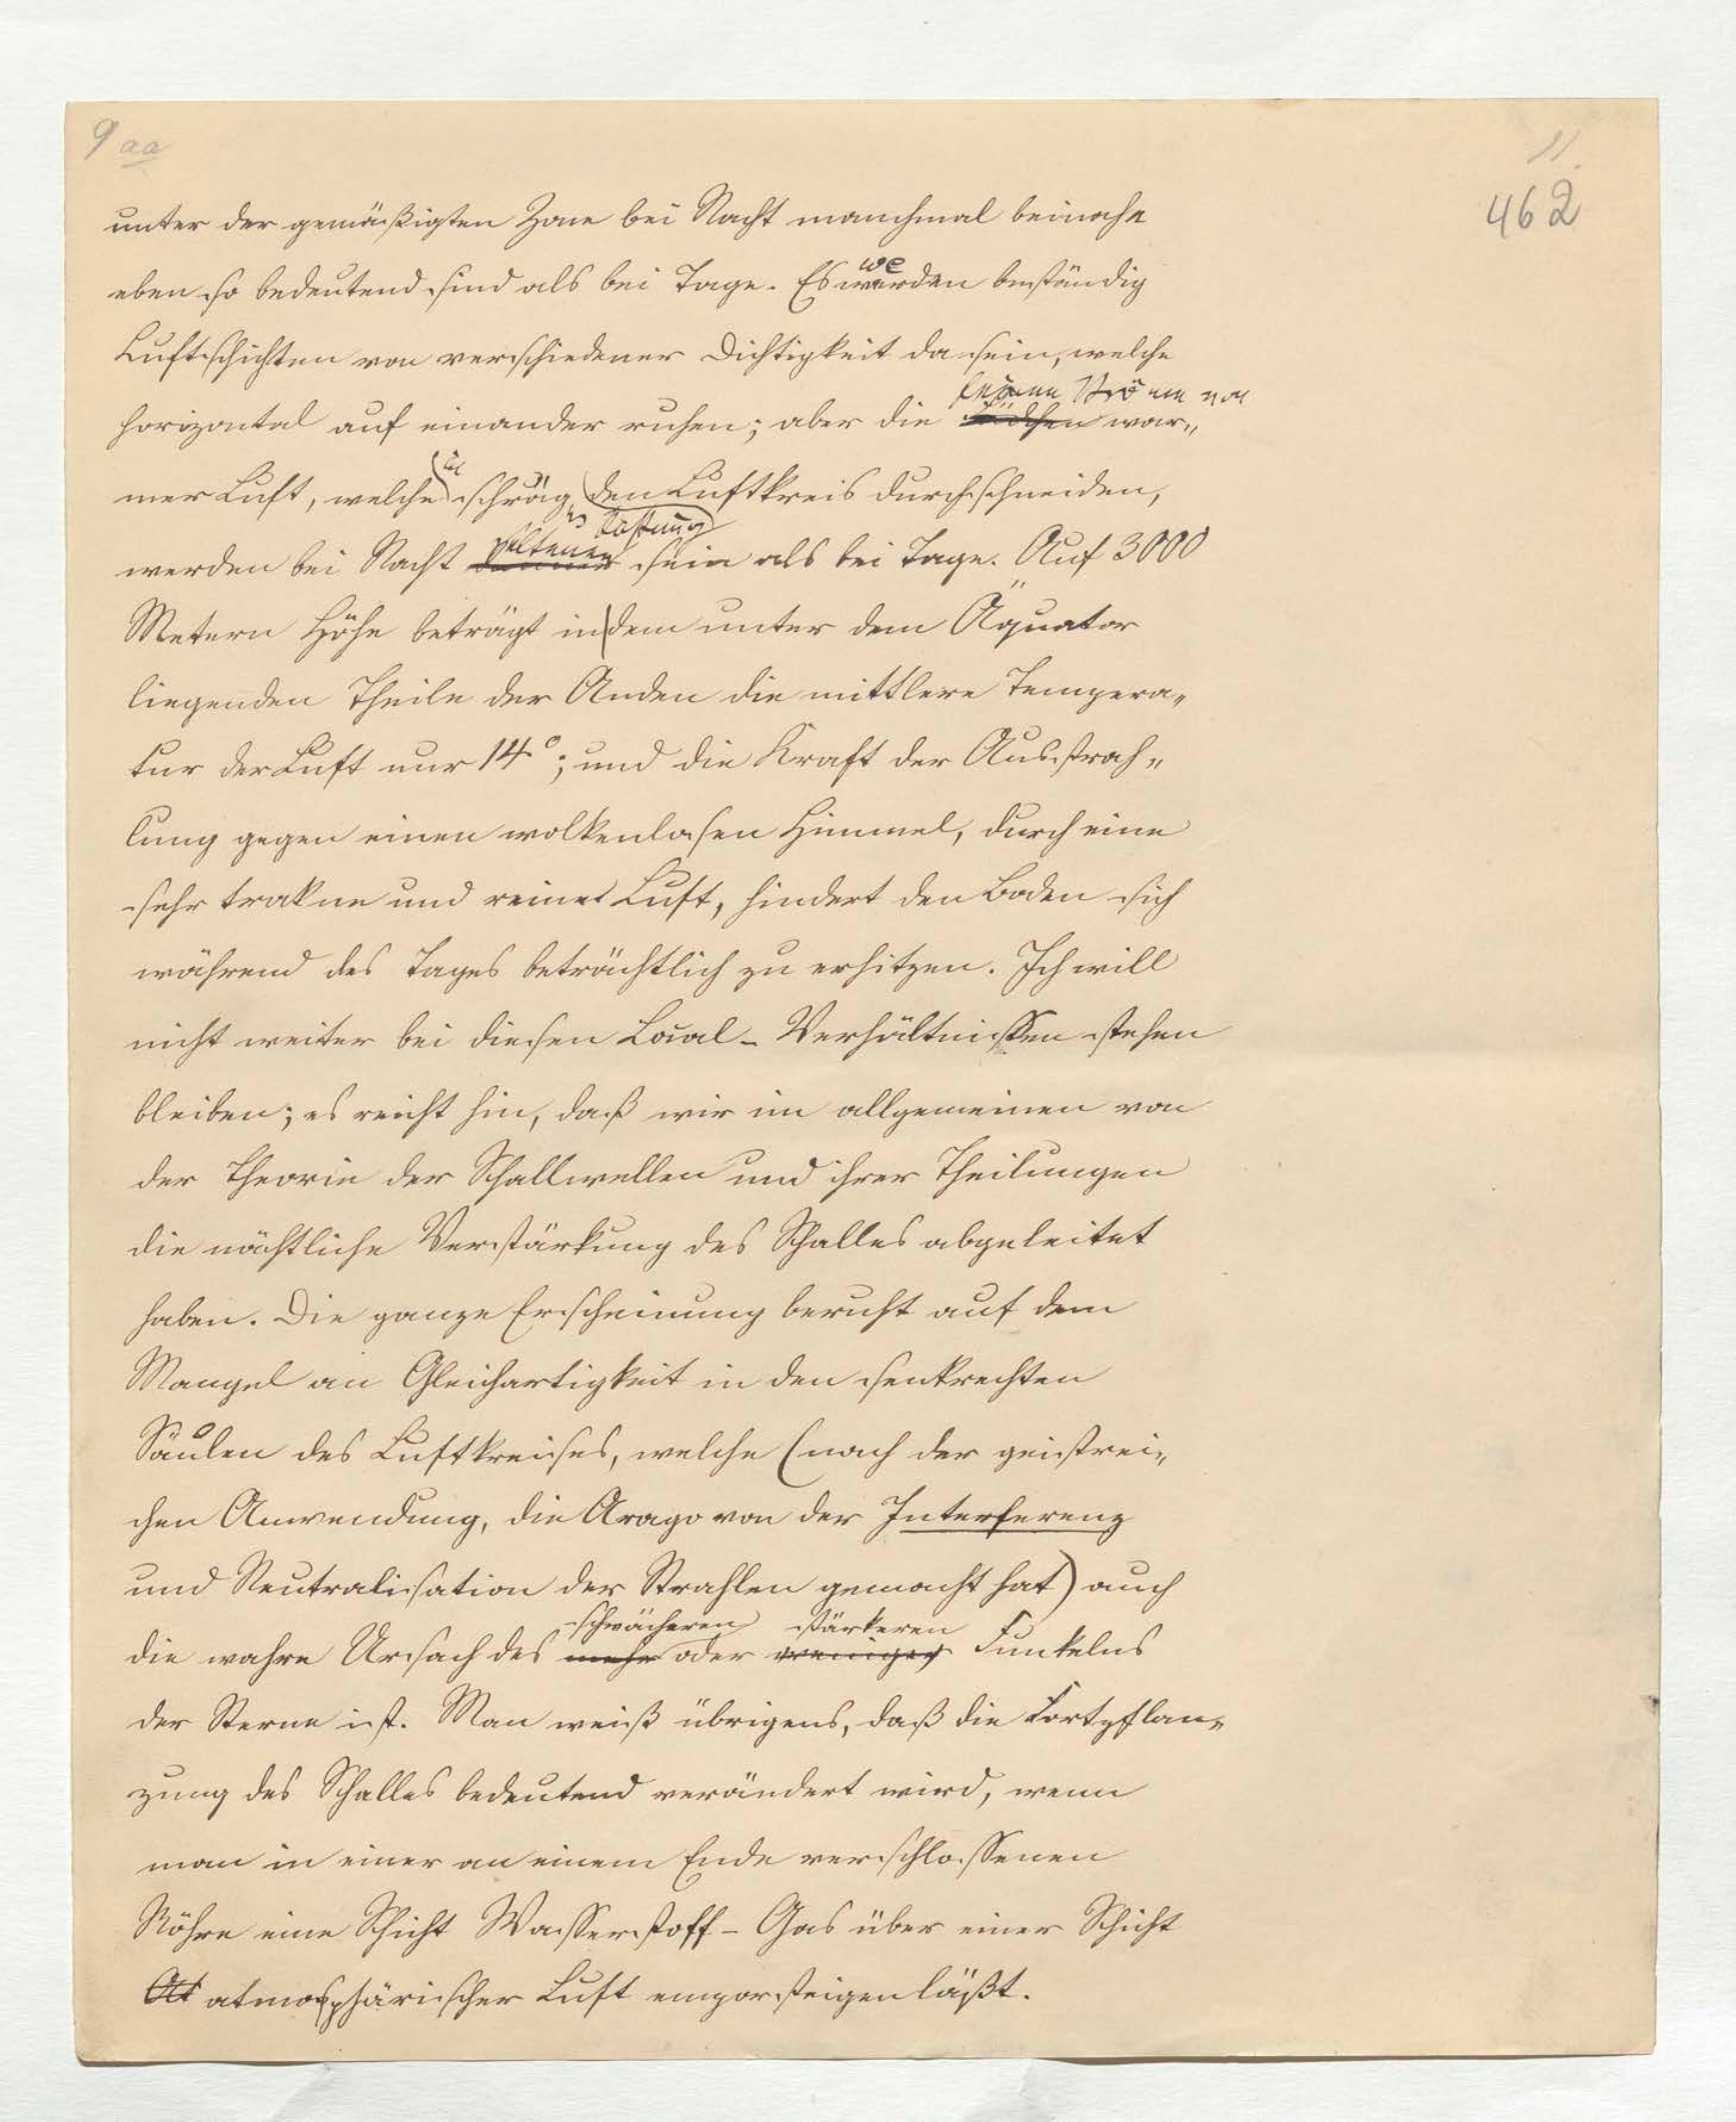 9 aa
11.
462
unter der gemäßigten Zone bei Nacht manchmal beinahe
we
eben so bedeutend sind als bei Tage. Es werden beständig
Luftschichten von verschiedener Dichtigkeit da sein, welche
kleinen Ströme von
horizontal auf einander ruhen; aber die Fädchen war„
mer Luft, welche schräg den Luftkreis durchschneiden,
in Richtung
seltener
werden bei Nacht dünner sein als bei Tage. Auf 3000
Metern Höhe beträgt in dem unter dem Äquator
liegenden Theile der Anden die mittlere Tempera„
tur der Luft nur 14°; und die Kraft der Ausstrah„
lung gegen einen wolkenlosen Himmel, durch eine
sehr trokne und reine Luft, hindert den Boden sich
während des Tages beträchtlich zu erhitzen. Ich will
nicht weiter bei diesen Local-Verhältnissen stehen
bleiben; es reicht hin, daß wir im allgemeinen von
der Theorie der Schallwellen und ihrer Theilungen
die nächtliche Verstärkung des Schalles abgeleitet
haben. Die ganze Erscheinung beruht auf dem
Mangel an Gleichartigkeit in den senkrechten
Säulen des Luftkreises, welche (nach der geistrei„
chen Anwendung, die Arago von der Interferenz
und Neutralisation der Strahlen gemacht hat) auch
schwächeren stärkeren
die wahre Ursach des mehr oder weniger Funkelns
der Sterne ist. Man weiß übrigens, daß die Fortpflan„
zung des Schalles bedeutend verändert wird, wenn
man in einer an einem Ende verschlossenen
Röhre eine Schicht Wasserstoff-Gas über einer Schicht
At atmosphärischer Luft emporsteigen läßt.